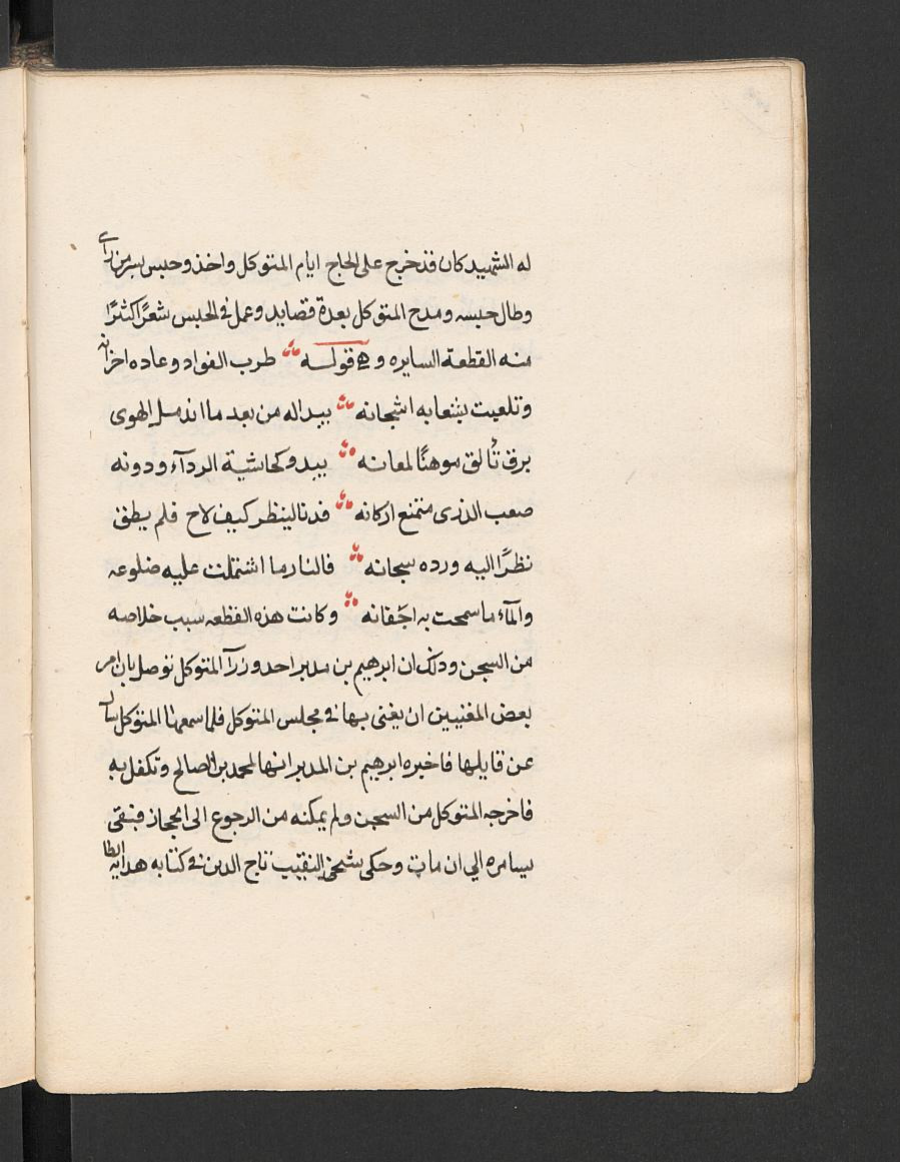 له الشهيد كان قد خرج على الحاج ايام المتوكل واخذ وحبس بسر من راى
وطال حبسه ومدح المتوكل بعدة قصايد وعمل في الحبس شعرًا كثيرًا
منه القطعة السايره وهي قوله طرب الفواد وعاده احزانه
وتلعبت بشعابه اشجانه وبداله من بعد ما اندمل الهوى
برق تألق موهنًا لمعانه يبدو كحاشية الردآء ودونه
صعب الذرى متمنع اركانه فدنا لينظر كيف لاح فلم يطق
نظرًا اليه ورده سجانه فالنار ما اشتملت عليه ضلوعه
والمآء ما سمحت به اجفانه وكانت هذه القطعه سبب خلاصه
من السجن وذلك ان ابرهيم بن مدبر احد وزرآ المتوكل توصل بان امر
بعض المغنيين ان يغنى بها في مجلس المتوكل فلما سمعها المتوكل سال
عن قايلها فاخبره ابرهيم بن المدبر انها لمحمد بن الصالح وتكفل به
فاخرجه المتوكل من السجن ولم يمكنه من الرجوع الى الحجاز فبقى
بسامره الي ان مات وحكى شيخي النقيب تاج الدين في كتابه هداية الطا